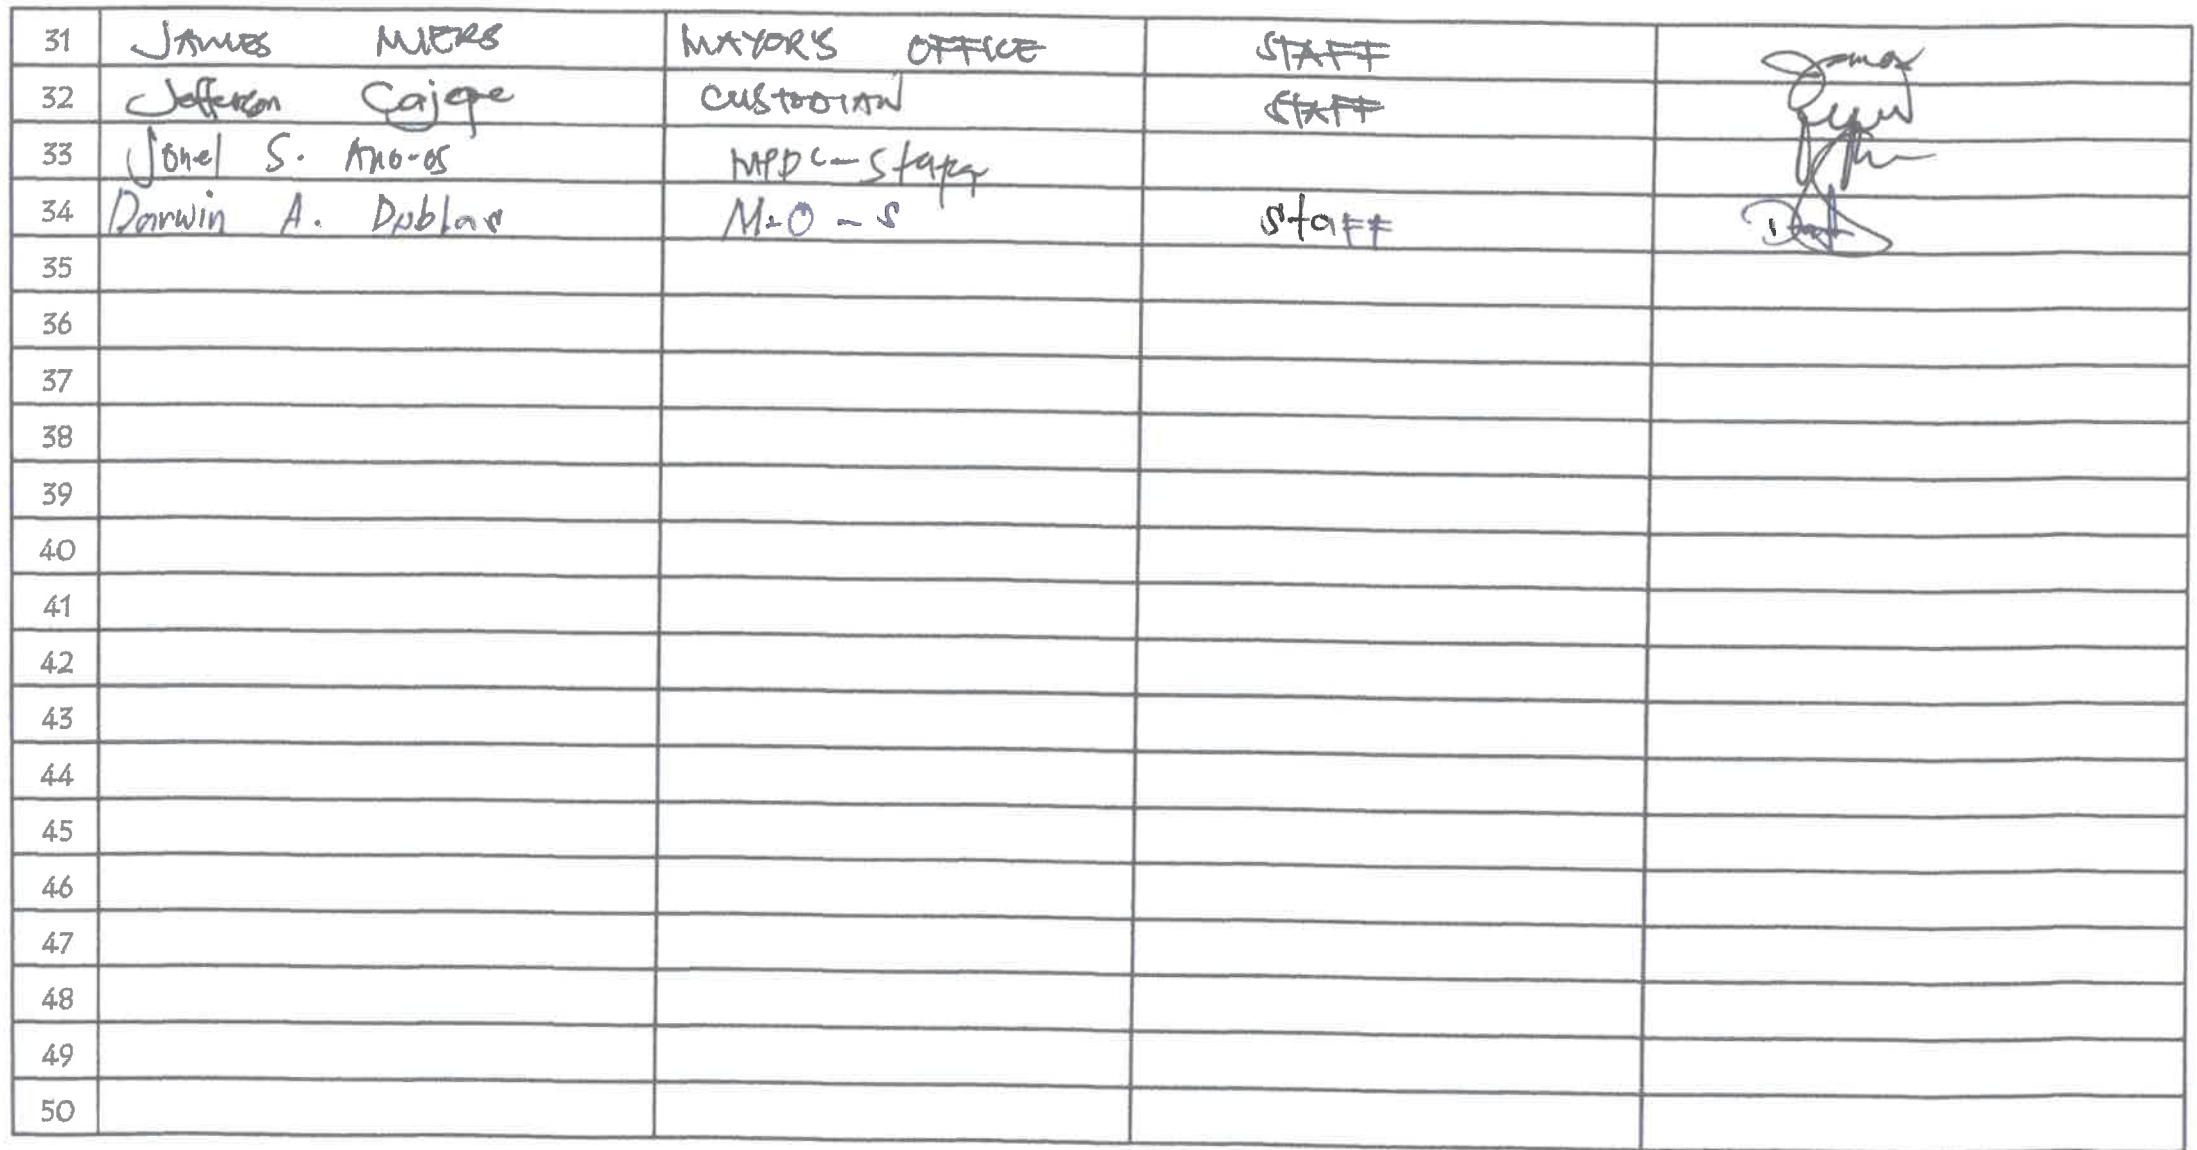 31 JAMES MIERS MAYOR'S OFFICE STAFF
32 Jefferson Cajepe CUSTODIAN STAFF
33 Jonel S. Ano-os MPDC-Staff
34 Darwin A. Doblas M-O-S Staff
35
36
37
38
39
40
41
42
43
44
45
46
47
48
49
50